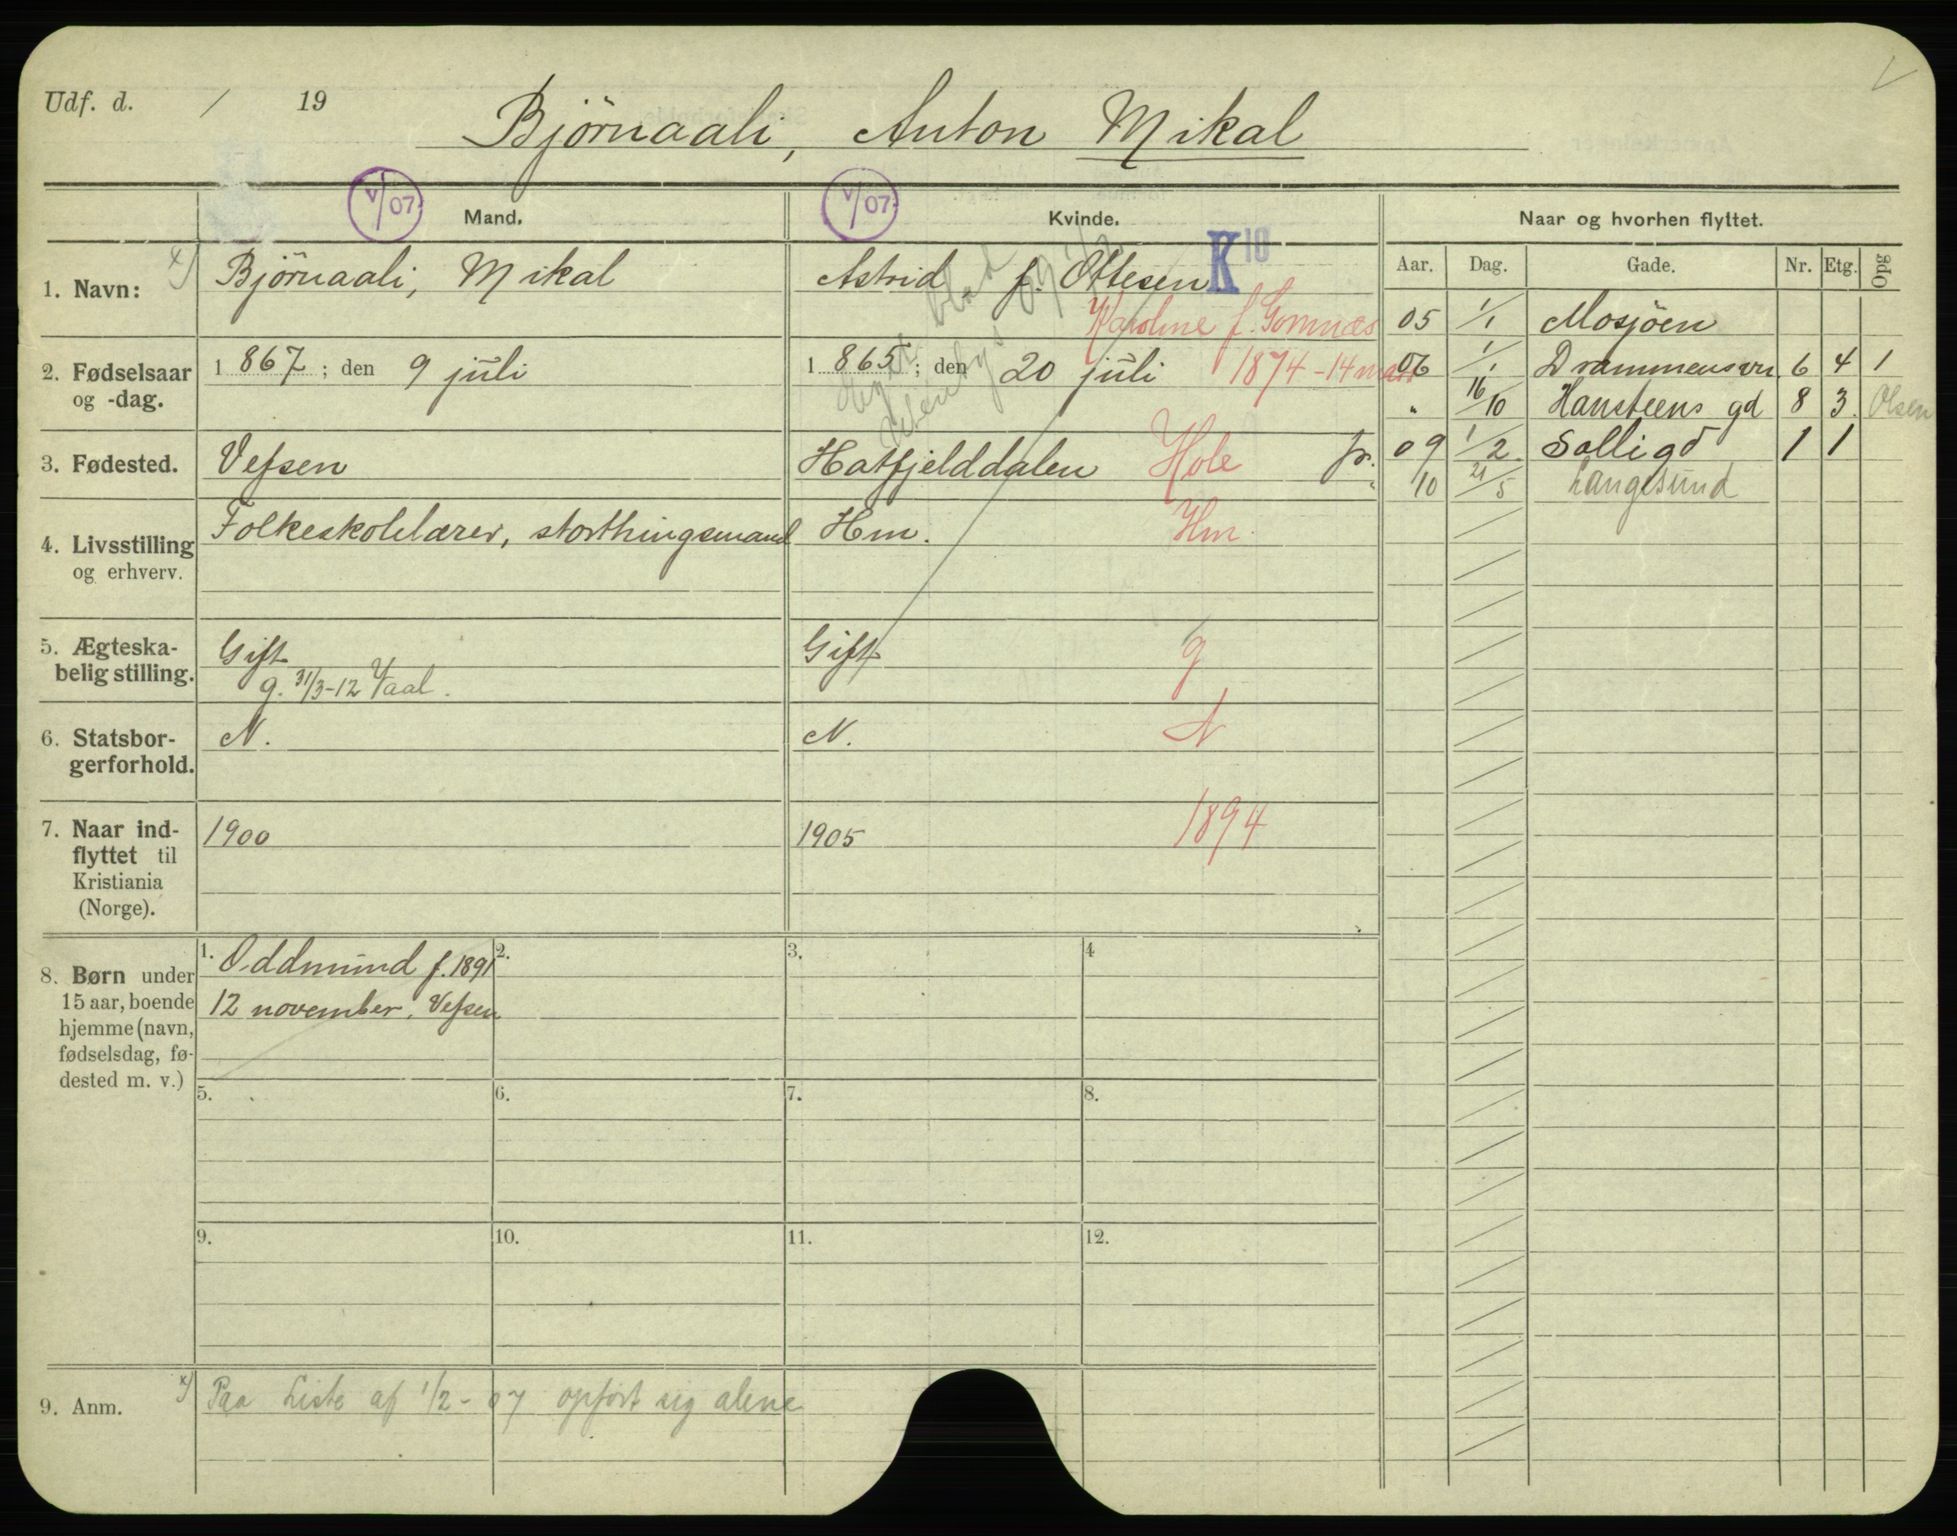 Udf. d. / 19
Bjørnaali, Anton Mikal
V/07
V/07
Mand.
Kvinde.
Naar og hvorhen flyttet.
Aar. Dag. Gade. Nr. Etg. Opg
1. Navn:
x) Bjørnaali, Mikal
Astrid f. Ottesen
K 10
Karoline f. Gomnæs
2. Fødselsaar
og -dag.
1 867 ; den 9 juli
1 865 ; den 20 juli
1874 - 14 mars
3. Fødested.
Vefsen
Hatfjelddalen
Hole
4. Livsstilling
og erhverv.
Folkeskolelærer, storthingsmand
Hm.
Hm.
5. Ægteska-
belig stilling.
Gift
g. 31/3-12 Vaal.
Gift
g
6. Statsbor-
gerforhold.
N.
N.
N
7. Naar ind-
flyttet til
Kristiania
(Norge).
1900
1905
1894
05 1/1 Mosjøen
06 1/1 Drammensvn 6 4 1
" 16/10 Hansteens gd 8 3. Olsen
fr. 09 1/2 Solligd 1 1
10 21/5 Langesund
8. Børn under
15 aar, boende
hjemme (navn,
fødselsdag, fø-
dested m. v.)
1. Oddmund f. 1891
12 november, Vefsen
2.
3.
4
5.
6.
7.
8.
9.
10.
11.
12.
9. Anm.
x) Paa Liste af 1/2 - 07 opført sig alene